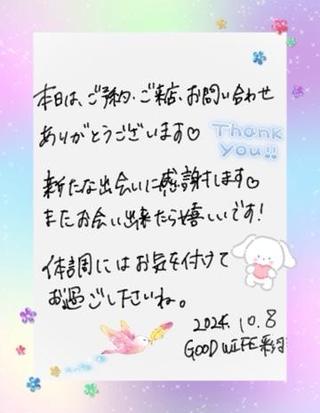 本日は、ご予約・ご来店・お問い合わせ
ありがとうございます♡
Thank
you!!
新たな出会いに感謝します♡
またお会い出来たら嬉しいです!
体調にはお気を付けて
お過ごしくださいね。
2024. 10. 8
GOOD WIFE